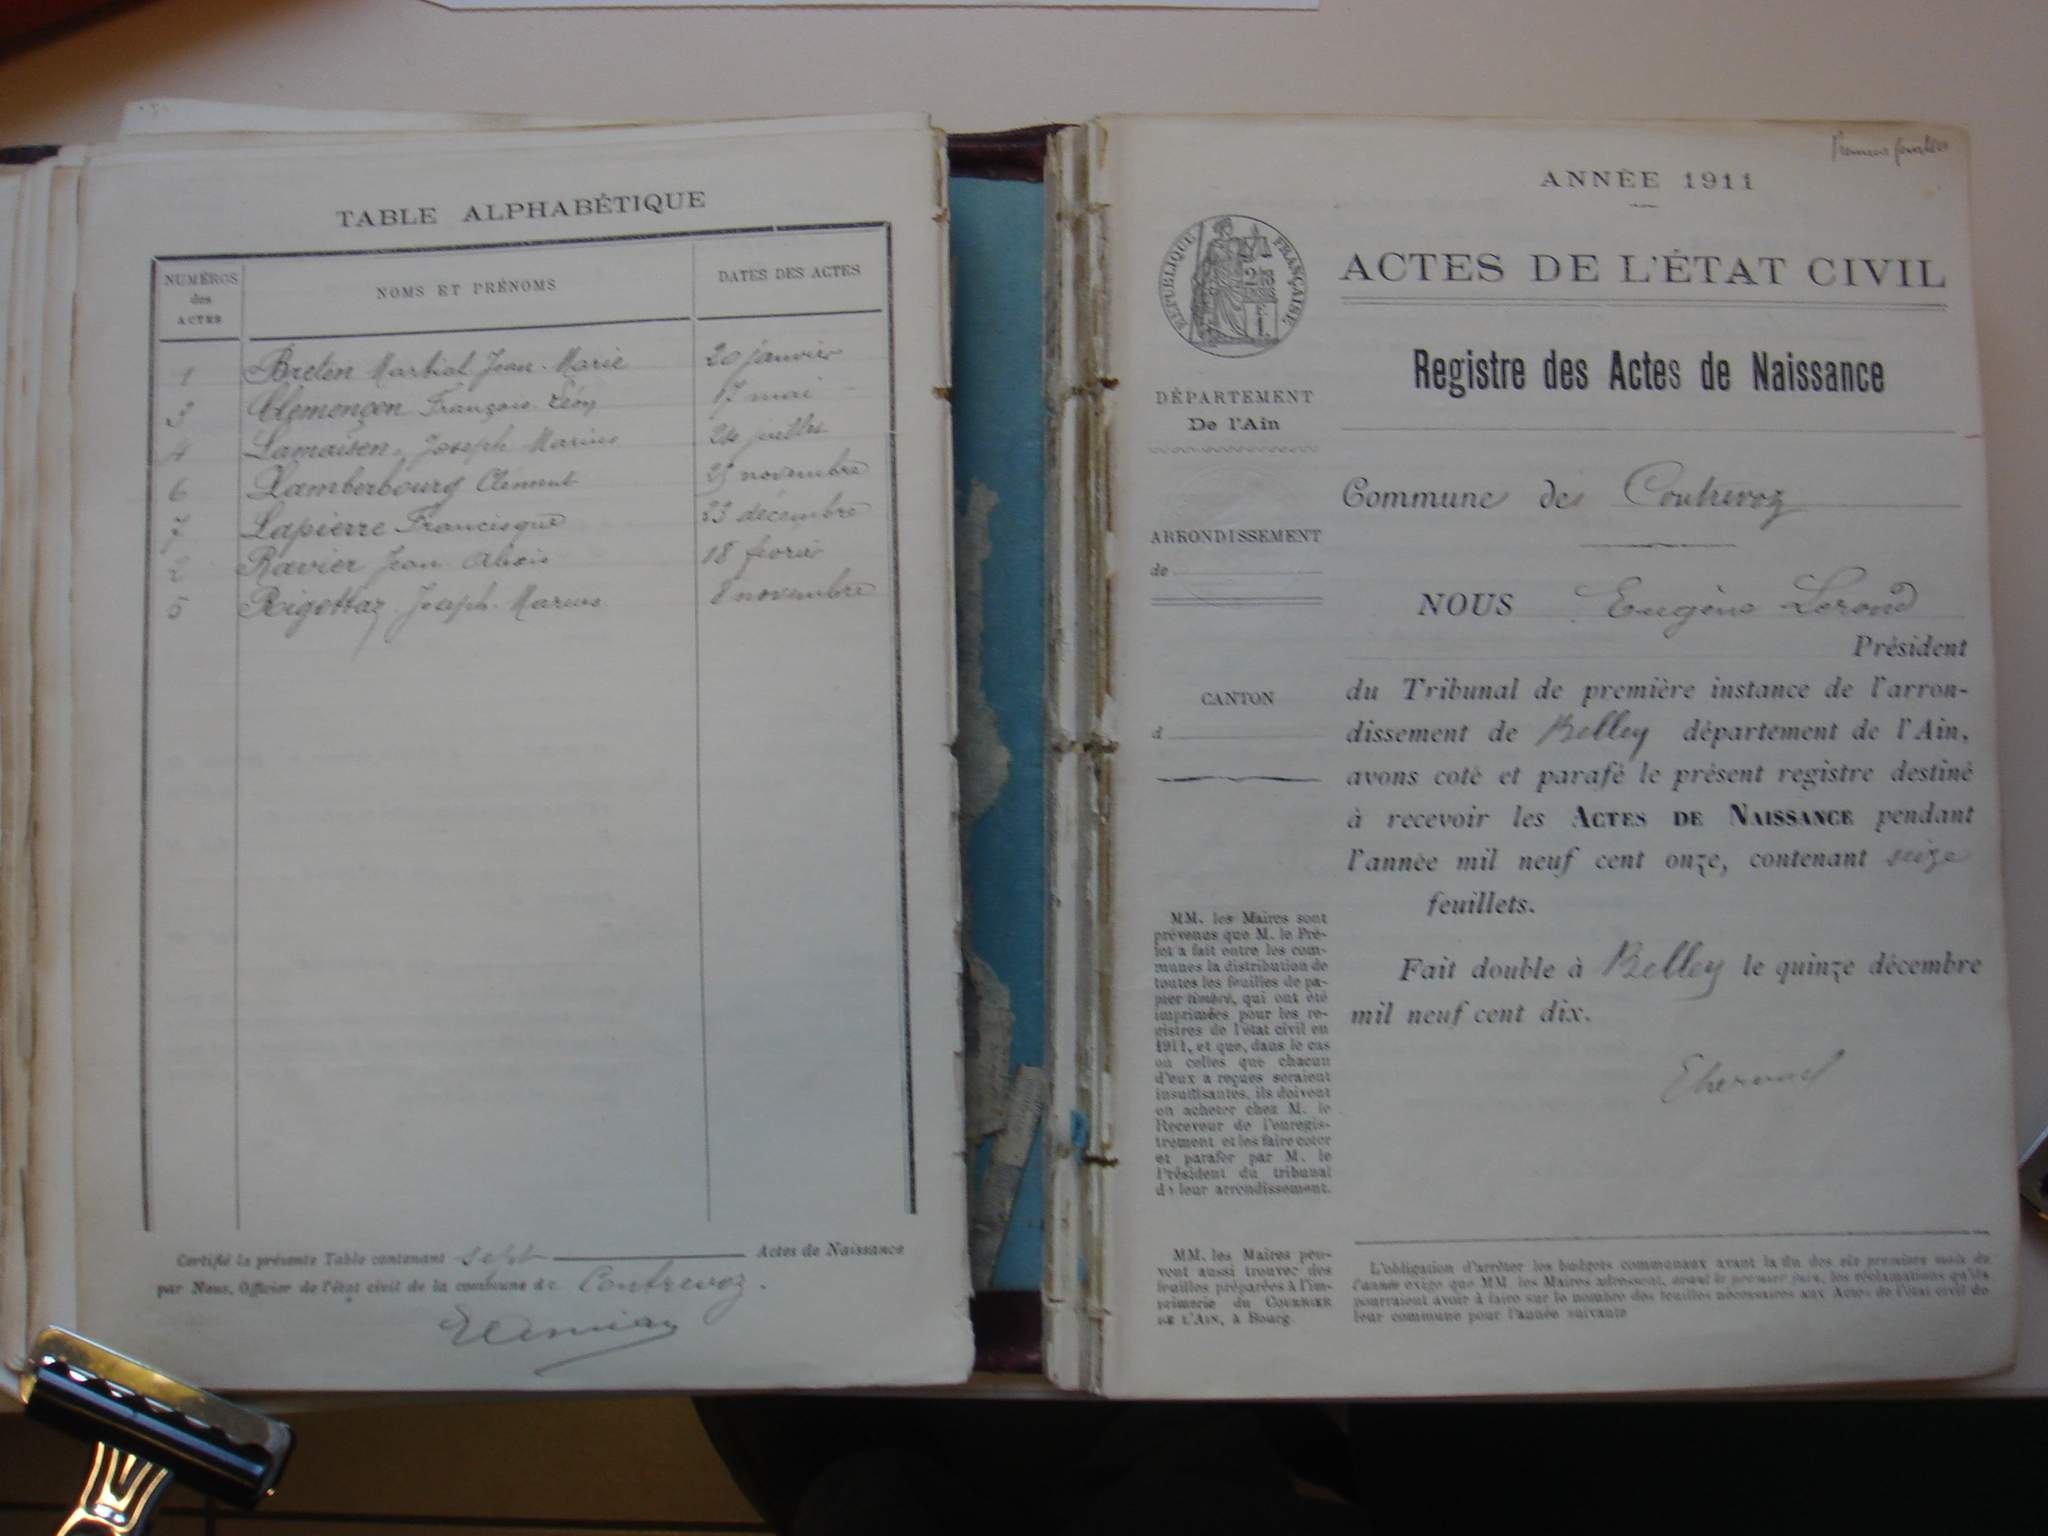 TABLE ALPHABÉTIQUE
NUMÉROS des ACTES
NOMS ET PRÉNOMS
DATES DES ACTES
1 Breton Martial Jean-Marie 20 janvier
3 Clemençon François-Léon 17 mai
4 Lamaison Joseph Marius 24 juillet
6 Lamberbourg Clément 25 novembre
7 Lapierre Francisque 23 décembre
2 Ravier Jean Alexis 18 février
5 Rigottaz Joseph-Marius 8 novembre
Certifié la présente Table contenant sept Actes de Naissance
par Nous, Officier de l'état civil de la commune de Contrevoz.
Premier feuillet
ANNÉE 1911
RÉPUBLIQUE FRANÇAISE
ACTES DE L'ÉTAT CIVIL
Registre des Actes de Naissance
DÉPARTEMENT
De l'Ain
ARRONDISSEMENT
de
CANTON
d
Commune de Contrevoz
NOUS Eugène
Président
du Tribunal de première instance de l'arron-
dissement de Belley département de l'Ain,
avons coté et parafé le présent registre destiné
à recevoir les ACTES DE NAISSANCE pendant
l'année mil neuf cent onze, contenant seize
feuillets.
Fait double à Belley le quinze décembre
mil neuf cent dix.
MM. les Maires sont
prévenus que M. le Pré-
fet a fait entre les com-
munes la distribution de
toutes les feuilles de pa-
pier timbré, qui ont été
imprimées pour les re-
gistres de l'état civil en
1911, et que, dans le cas
où celles que chacun
d'eux a reçues seraient
insuffisantes, ils doivent
en acheter chez M. le
Receveur de l'enregis-
trement et les faire coter
et parafer par M. le
Président du tribunal
de leur arrondissement.
MM. les Maires peu-
vent aussi trouver des
feuilles préparées à l'im-
primerie du COURRIER
DE L'AIN, à Bourg.
L'obligation d'arrêter les budgets communaux avant la fin des six premiers mois de
l'année exige que MM. les Maires adressent, avant le premier juin, les réclamations qu'ils
pourraient avoir à faire sur le nombre des feuilles nécessaires aux Actes de l'état civil de
leur commune pour l'année suivante